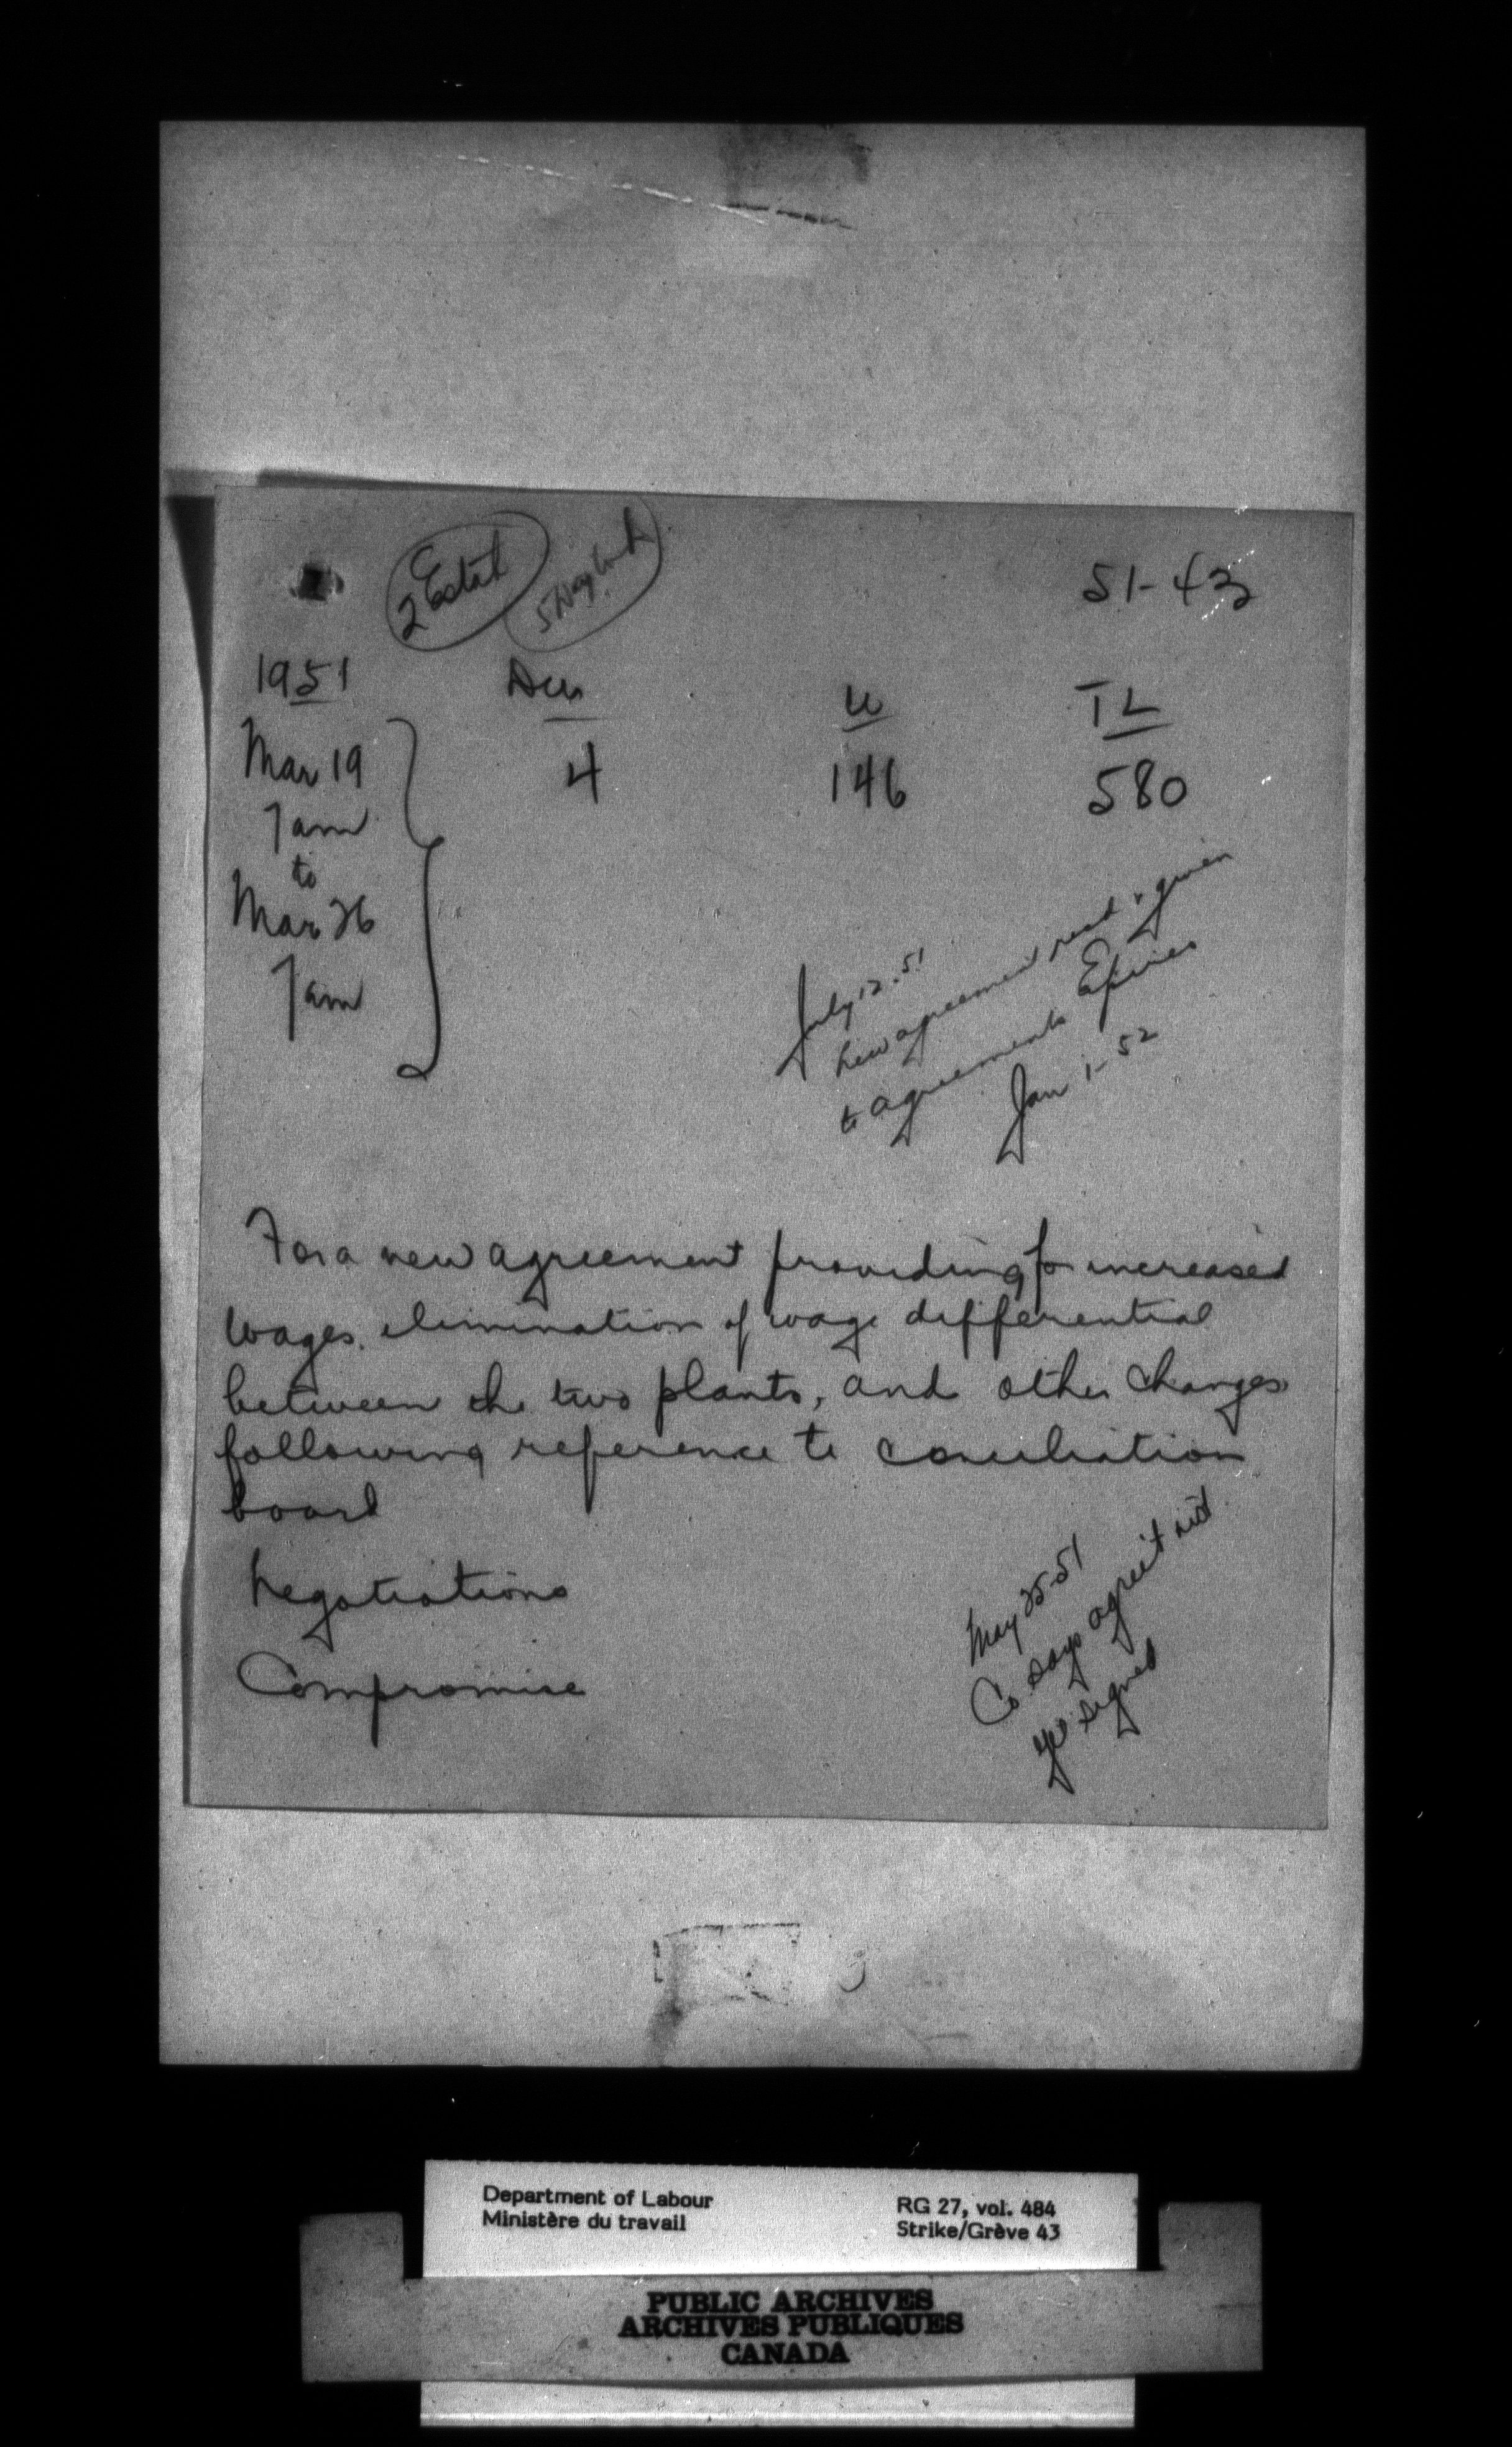 2 Estab
5 Day Week
51-43
1951
Dur
W
TL
Mar 19
4
146
580
7am
to
Mar 26
7am
July 12-51
New agreement recd & given
to agreements Expires
Jan 1-52
For a new agreement providing for increased
wages, elimination of wage differential
between the two plants, and other changes
following reference to conciliation
board
Negotiations
Compromise
May 25-51
Co says agree't not
yet signed
Department of Labour
Ministère du travail
RG 27, vol. 484
Strike/Grève 43
PUBLIC ARCHIVES
ARCHIVES PUBLIQUES
CANADA